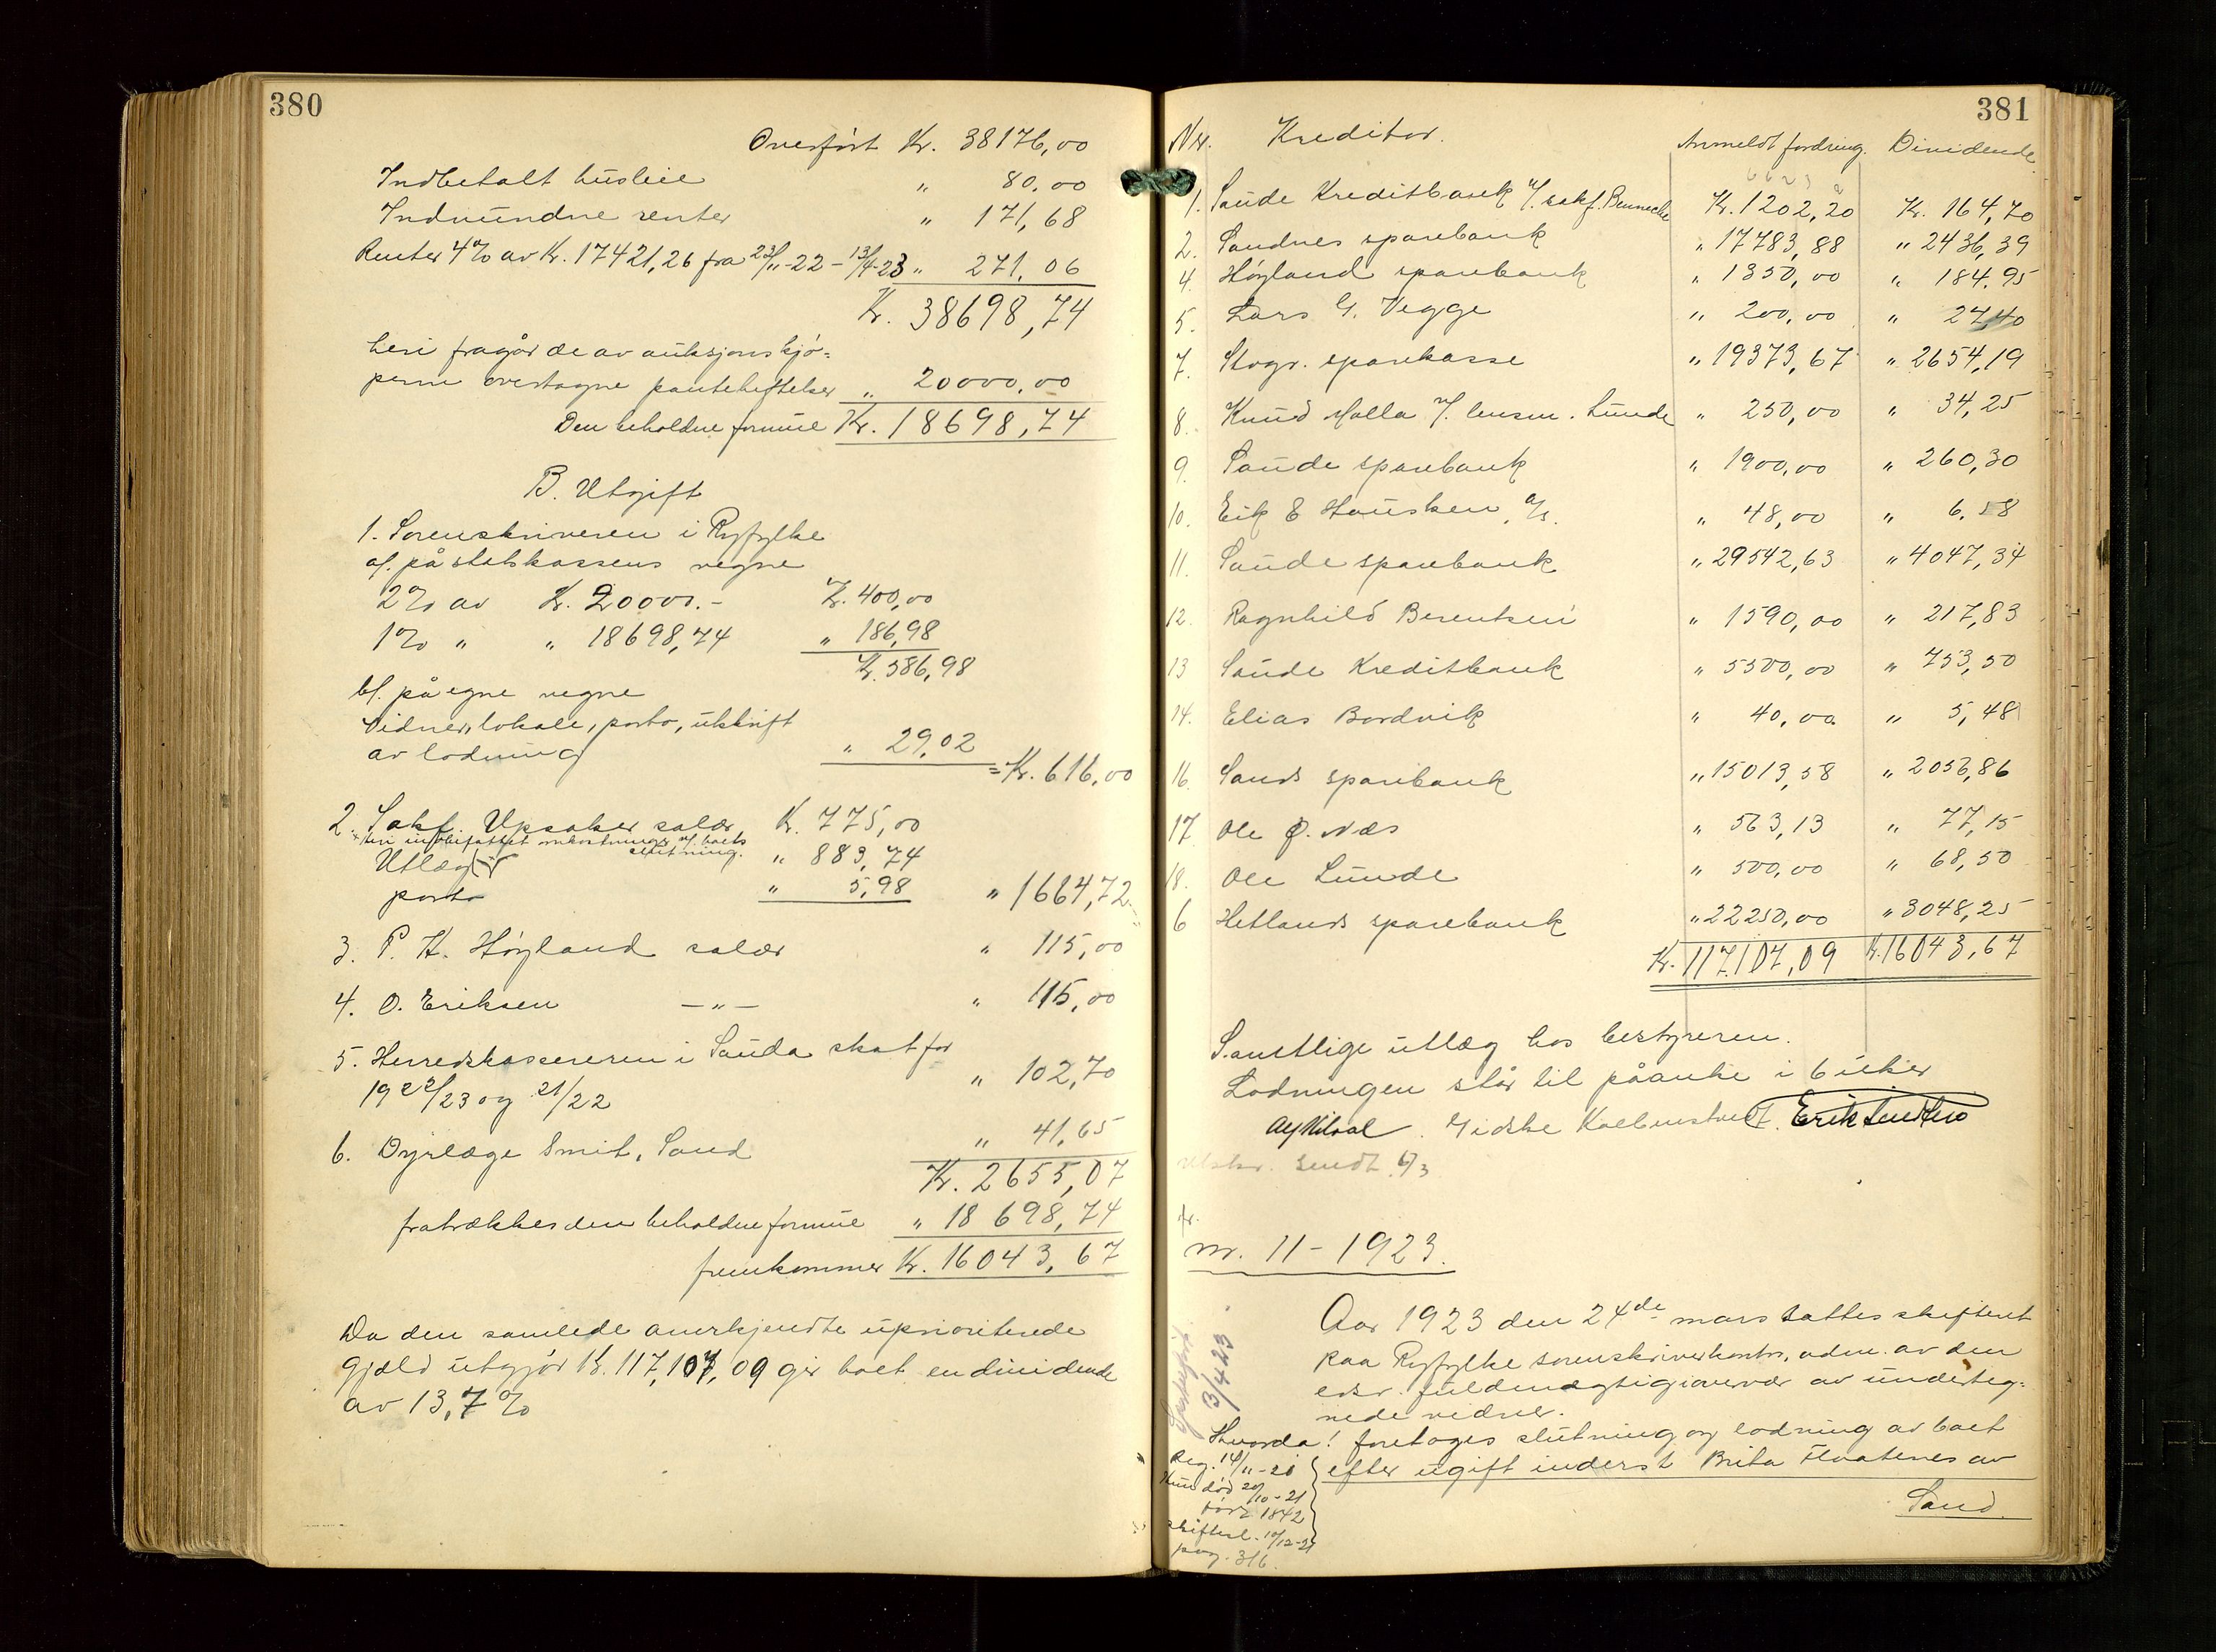 380
Overført Kr. 38176,00
Indbetalt husleie " 80,00
Indvundne renter " 171,68
Renter 4% av Kr. 17421,26 fra 23/11-22 – 13/4-23 " 271,06
Kr. 38698,74
heri fragår de av auksjonskjø-
perne overtagne panteheftelser " 20000,00
Den beholdne formue Kr. 18698,74
B. Utgift
1. Sorenskriveren i Ryfylke
a/. på statskassens vegne
2% av Kr. 20000.- Kr. 400,00
1% " " 18698,74 " 186,98
Kr. 586,98
b/. på egne vegne
Vidner, lokale, porto, utskrift
av lodning " 29,02
= Kr. 616,00
2. Sakf. Upsaker salær Kr. 775,00
heri indbefattet omkostninger v/. boets
slutning.
Utlæg " 883,74
porto " 5,98 " 1664,72
3. P. K. Høyland salær " 115,00
4. O. Eriksen — " — " 115,00
5. Herredskassereren i Sauda skat for
1922/23 og 21/22 " 102,70
6. Dyrlæge Smit, Sand " 41,65
Kr. 2655,07
fratrækkes den beholdne formue " 18698,74
fremkommer Kr. 16043,67
Da den samlede anerkjendte upriioriterede
gjæld utgjør Kr. 117,107,09 gir boet en dividende
av 13,7%
381
Nr. Kreditor. Anmeldt fordring. Dividende
1. Saude Kreditbank v/. sakf. Bennecke Kr. 1202,20 Kr. 164,70
2. Sandnes sparebank " 17783,88 " 2436,39
4. Høyland sparebank " 1350,00 " 184,95
5. Lars G. Vegge " 200,00 " 27,40
7. Stvgr. sparekasse " 19373,67 " 2654,19
8. Knud Molla v/. lensm. Lunde " 250,00 " 34,25
9. Saude sparebank " 1900,00 " 260,30
10. Eik & Hausken a/s. " 48,00 " 6,58
11. Saude sparebank " 29542,63 " 4047,34
12. Ragnhild Berentsen " 1590,00 " 217,83
13 Saude Kreditbank " 5500,00 " 753,50
14. Elias Bordvik " 40,00 " 5,48
16. Sands sparebank " 15013,58 " 2056,86
17. Ole Ø. Næs " 563,13 " 77,15
18. Ole Lunde " 500,00 " 68,50
6 Hetlands sparebank " 22250,00 " 3048,25
Kr. 117107,09 Kr. 16043,67
Samtlige utlæg hos bestyreren.
Lodningen står til påanke i 6 uker
Gidske Erik
Utskr. sendt 6/3
nr. 11-1923.
Aar 1923 den 24de mars sattes skifteret
paa Ryfylke sorenskriverkontor, adm. av den
edsv. fuldmægtig i overvær av underteg-
nede vidner.
Hvorda! foretoges slutning og lodning av boet
efter ugift inderst Brita Flaatenes av
Sand.
3/4 23
Reg. 14/11-21
Hun død 20/10-21
født 1842
skiftesl. 10/12-21
pag. 316.